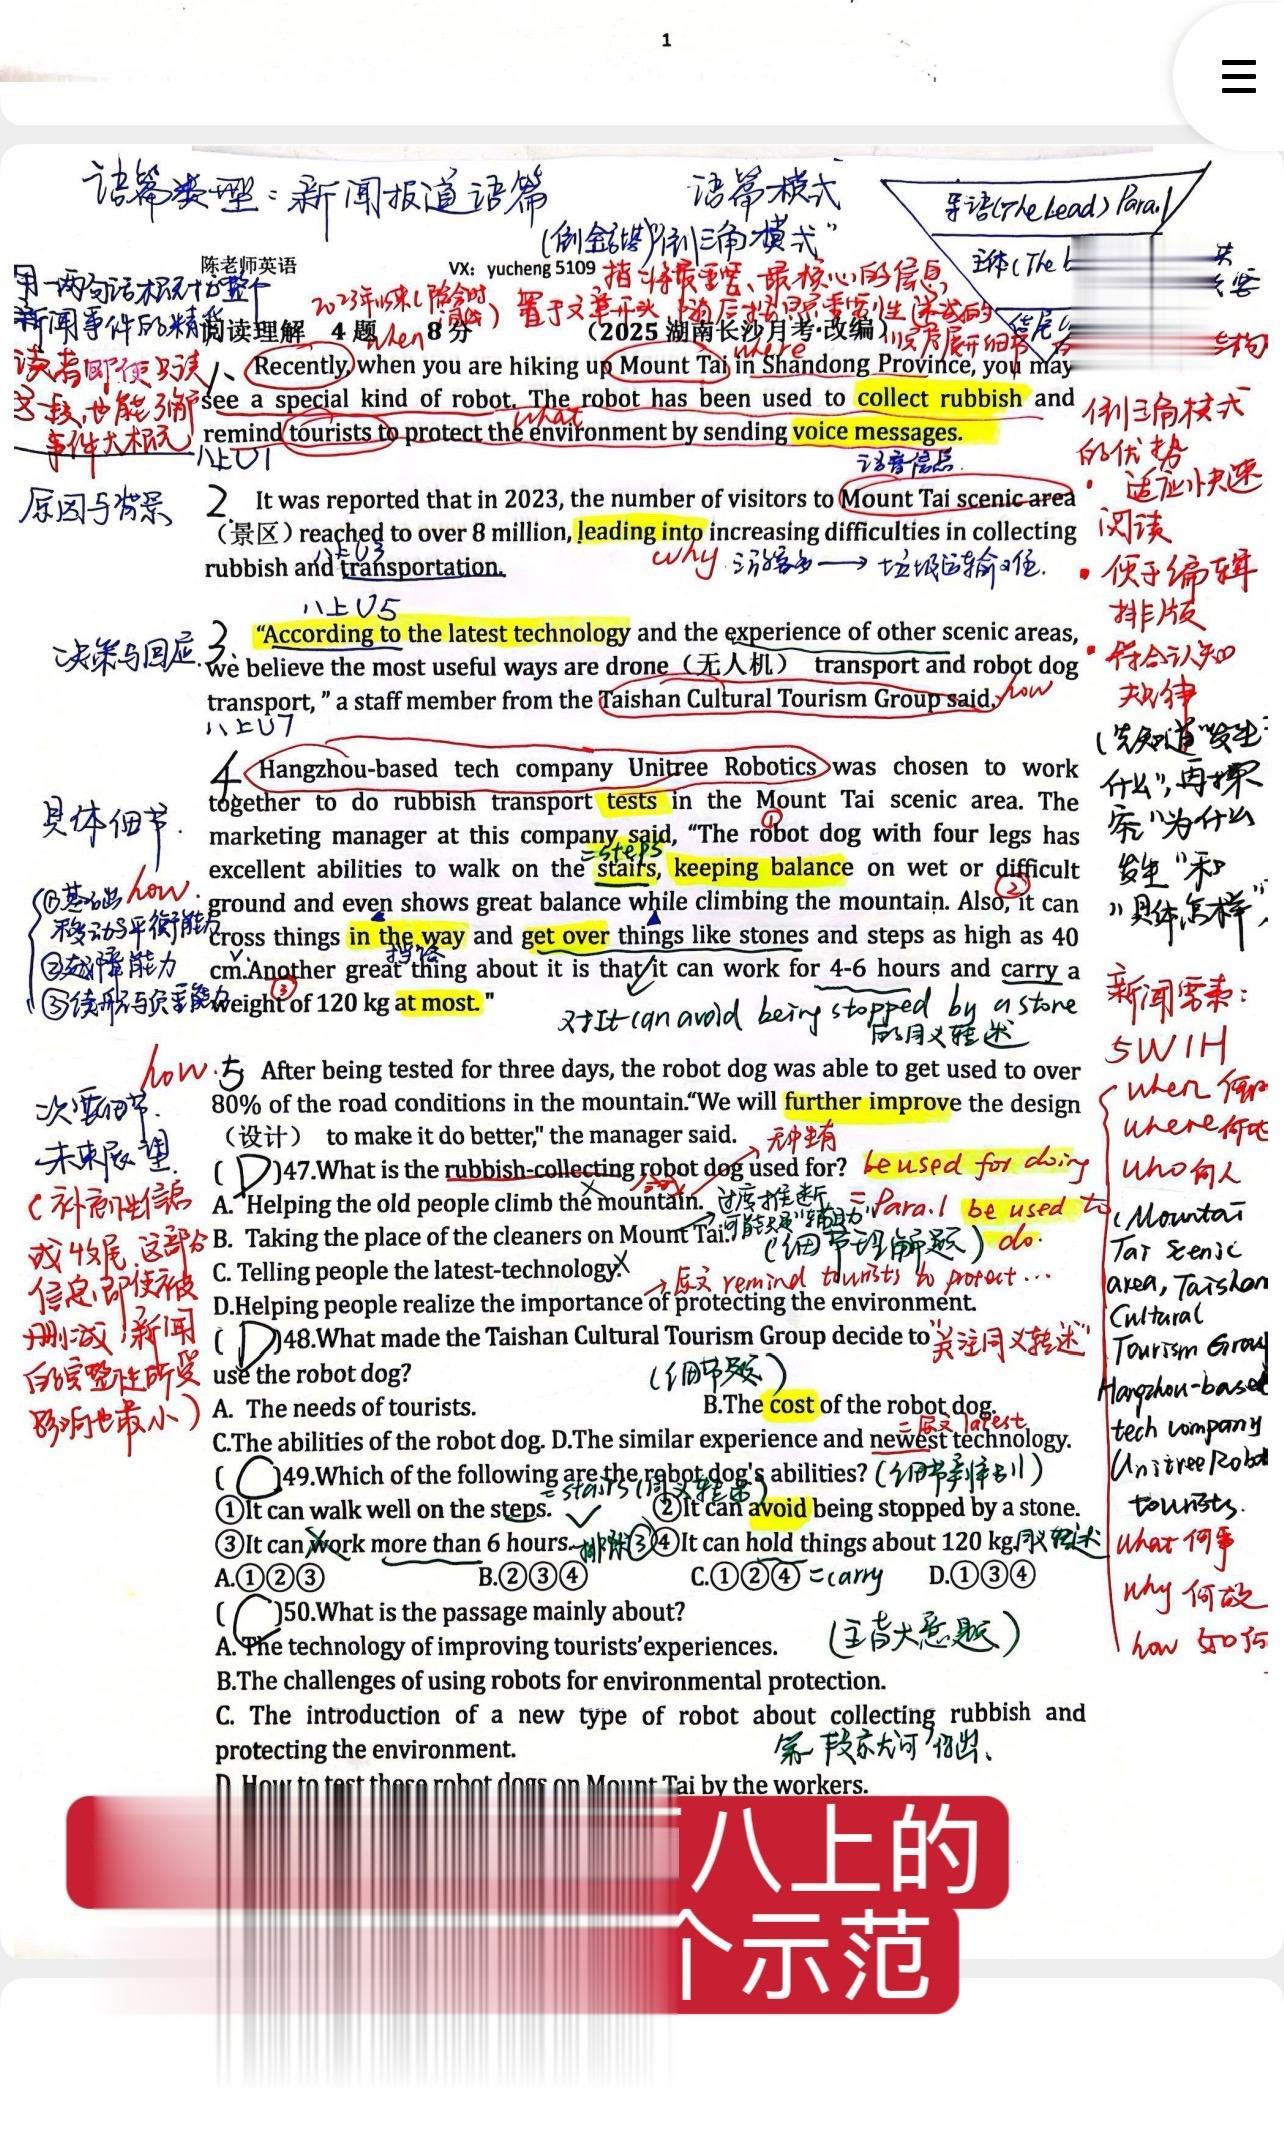 1
语篇类型：新闻报道语篇
语篇模式
(倒金字塔)"倒三角模式"
导语(The Lead) Para.1
主体(The
陈老师英语
VX: yucheng 5109
指将最重要、最核心的信息，
置于文章开头
用一两句话概括整个
新闻事件的精华
阅读理解 4 题 8 分 (2025 湖南长沙月考·改编)
读者即使只读
这一段,也能了解
事件大概
when
where
1、Recently, when you are hiking up Mount Tai in Shandong Province, you may
see a special kind of robot. The robot has been used to collect rubbish and
what
remind tourists to protect the environment by sending voice messages.
八上U1
语音信息.
倒三角模式
的优势
· 适应快速
阅读
· 便于编辑
排版
· 符合认知
规律
(先知道"发生
什么",再探
究"为什么
发生"和
"具体怎样"
原因与背景
2. It was reported that in 2023, the number of visitors to Mount Tai scenic area
（景区）reached to over 8 million, leading into increasing difficulties in collecting
八上U3
rubbish and transportation.
why 游客多→垃圾运输难.
八上U5
决策与回应.
3. “According to the latest technology and the experience of other scenic areas,
we believe the most useful ways are drone（无人机） transport and robot dog
transport, ” a staff member from the Taishan Cultural Tourism Group said. how
八上U7
4 Hangzhou-based tech company Unitree Robotics was chosen to work
together to do rubbish transport tests in the Mount Tai scenic area. The
marketing manager at this company said, “The robot dog with four legs has
=steps
excellent abilities to walk on the stairs, keeping balance on wet or difficult
ground and even shows great balance while climbing the mountain. Also, it can
cross things in the way and get over things like stones and steps as high as 40
挡路
cm.Another great thing about it is that it can work for 4-6 hours and carry a
weight of 120 kg at most. "
具体细节.
how.
①基础
移动与平衡能力
②越障能力
③续航与负重能力
对It can avoid being stopped by a stone
的同义转述
新闻需素：
5W1H
when 何时
where 何地
who 何人
(Mountai
Tai Scenic
area, Taishan
Cultural
Tourism Group
Hangzhou-based
tech company
Unitree Robot
tourists.
what 何事
why 何故
how 如何
how.
5 After being tested for three days, the robot dog was able to get used to over
80% of the road conditions in the mountain.“We will further improve the design
（设计） to make it do better," the manager said.
次要细节.
未来展望.
(补充性信息
或收尾,这部分
信息即使被
删减,新闻
的完整性所受
影响也最小)
无中生有
( D )47.What is the rubbish-collecting robot dog used for? be used for doing
A. Helping the old people climb the mountain.
过度推断
=Para.1 be used to
do.
B. Taking the place of the cleaners on Mount Tai.
(细节理解题)
C. Telling people the latest-technology.
→原文 remind tourists to protect...
D.Helping people realize the importance of protecting the environment.
( D )48.What made the Taishan Cultural Tourism Group decide to
"关注同义转述"
use the robot dog?
(细节题)
A. The needs of tourists. B.The cost of the robot dog.
=原文 latest
C.The abilities of the robot dog. D.The similar experience and newest technology.
( C )49.Which of the following are the robot dog's abilities?
=stairs(同义转述)
①It can walk well on the steps. ②It can avoid being stopped by a stone.
③It can work more than 6 hours. 排除③ ④It can hold things about 120 kg. 同义转述
A.①②③ B.②③④ C.①②④ =carry D.①③④
( C )50.What is the passage mainly about?
(主旨大意题)
A. The technology of improving tourists'experiences.
B.The challenges of using robots for environmental protection.
C. The introduction of a new type of robot about collecting rubbish and
protecting the environment.
D. How to test these robot dogs on Mount Tai by the workers.
八上的
个示范